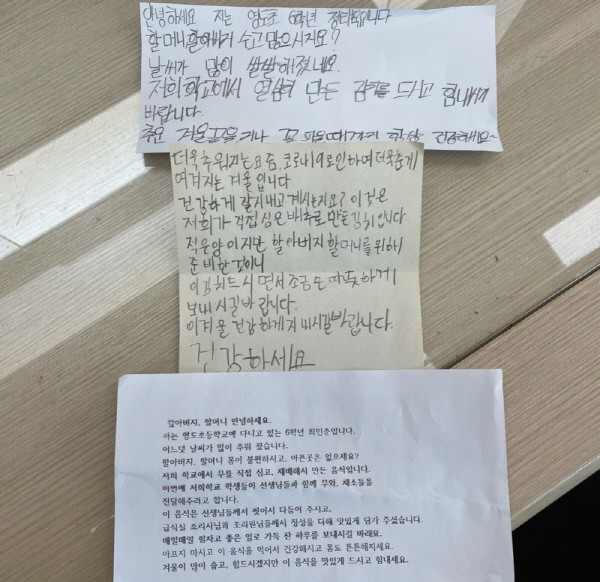 안녕하세요 저는 영도초 6학년
할머니할아버지 수고 많으시지요?
날씨가 많이 쌀쌀해졌네요.
저희학교에서 열심히 만든 김치를 드시고 힘내시기
바랍니다.
추운 겨울
더욱추워지는요즘, 코로나19로인하여더욱춥게
여겨지는 겨울입니다
건강하게 잘지내고 계시는지요? 이것은
저희가 직접 심은 배추로 만든김치입니다.
적은양이지만 할아버지 할머니를위해
준비한 것이니
이김치드시면서조금은 따뜻하게
보내시길바랍니다.
이겨울 건강하게지내시길바랍니다.
건강하세요
할아버지, 할머니 안녕하세요.
저는 영도초등학교에 다니고 있는 6학년 최민준입니다.
어느덧 날씨가 많이 추워 졌습니다.
할아버지, 할머니 몸이 불편하시고, 아픈곳은 없으세요?
저희 학교에서 무를 직접 심고, 재배해서 만든 음식입니다.
이번에 저희학교 학생들이 선생님들과 함께 무와, 채소들을
전달해주려고 합니다.
이 음식은 선생님들께서 씻어서 다듬어 주시고,
급식실 조리사님과 조리원님들께서 정성을 다해 맛있게 담가 주셨습니다.
매일매일 힘차고 좋은 일로 가득 찬 하루를 보내시길 바래요.
아프지 마시고 이 음식을 먹어서 건강해지고 몸도 튼튼해지세요.
겨울이 많이 춥고, 힘드시겠지만 이 음식을 맛있게 드시고 힘내세요.